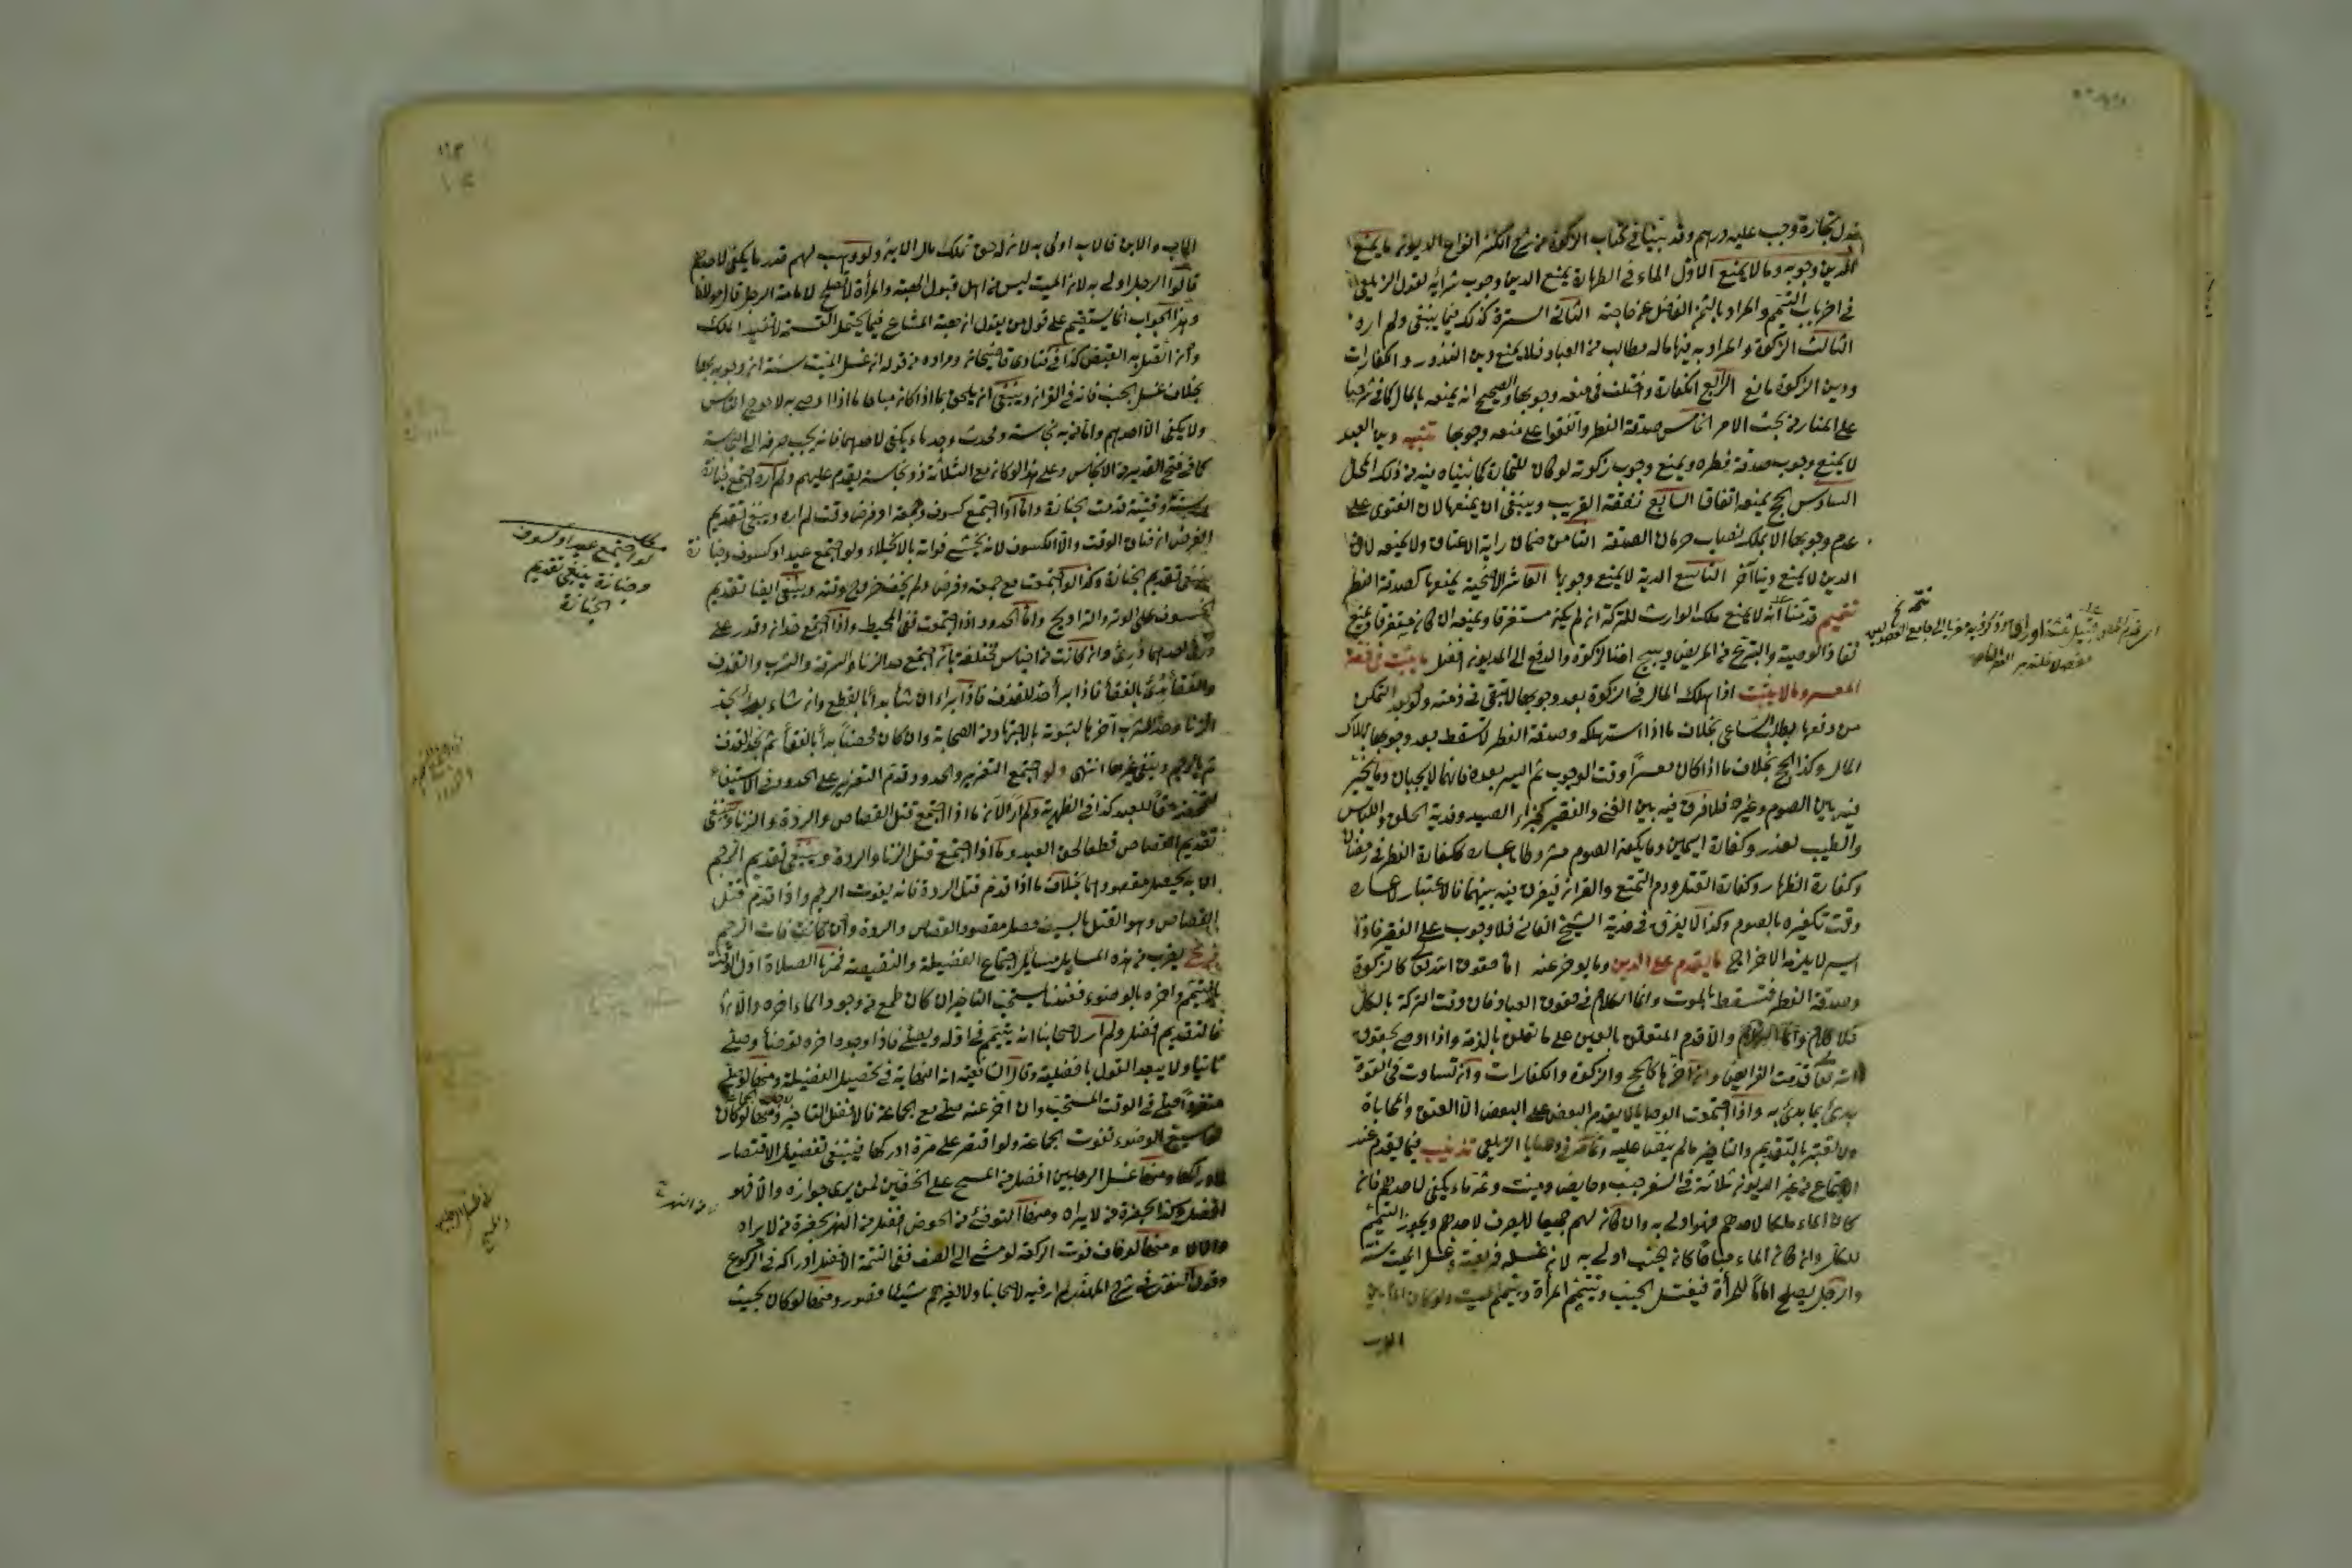 تجارة وجب عليه درهم وقد بينا في كتاب الزكوة من شرح الكنز انواع الديون ما يمنع
الدين وجوبه وما لا يمنع الاول الماء في الطهارة يمنع الدين وجوب شرائه لقول الزيلعي
في اخر باب التيمم والمراد بالثمن الفاضل عن حاجته الثاني السترة كذلك فيما ينبغي ولم اره
الثالث الزكوة والمراد به منها ماله مطالب من العباد فلا يمنع دين النذور والكفارات
ودين الزكوة مانع الرابع الكفارة واختلف في منعه وجوبها والصحيح انه يمنعه بالمال كما في شرحنا
على المنار من بحث الامر الخامس صدقة الفطر واتفقوا على منعه وجوبها تنبيه دين العبد
لا يمنع وجوب صدقة فطره ويمنع وجوب زكوته لو كان للتجارة كما بيناه فيه من ذلك المحل
السادس الحج يمنعه اتفاقا السابع نفقة القريب وينبغي ان يمنعها لان الفتوى على
عدم وجوبها الا بملك نصاب حرمان الصدقة الثامن ضمان سراية الاعتاق ولا يمنعه لان
الدين لا يمنع دينا آخر التاسع الدية لا يمنع وجوبها العاشر الاضحية يمنعها كصدقة الفطر
تتميم قدمنا انه لا يمنع ملك الوارث للتركة ان لم يكن مستغرقا ويمنعه ان كان مستغرقا ويمنع
نفاذ الوصية والتبرع من المريض ويبيح اخذ الزكوة والدفع الى المديون افضل ما يثبت في ذمة
المعسر وما لا يثبت اذا هلك المال في الزكوة بعد وجوبها لا تبقى في ذمته ولو بعد التمكن
من دفعها وطلب الساعي بخلاف ما اذا استهلكه وصدقة الفطر لا تسقط بعد وجوبها بهلاك
المال وكذا الحج بخلاف ما اذا كان معسرا وقت الوجوب ثم ايسر بعده فانهما لا يجبان وما يخير
فيه بين الصوم وغيره فلا فرق فيه بين الغني والفقير كجزاء الصيد وفدية الحلق واللباس
والطيب لعذر وكفارة اليمين وما يكون الصوم مشروطا باعساره ككفارة الفطر في رمضان
وكفارة الظهار وكفارة القتل ودم التمتع والقران فيفرق فيه بينهما فالاعتبار لاعساره
وقت تكفيره بالصوم وكذا لا يفرق في فدية الشيخ الفاني فلا وجوب على الفقير فاذا
ايسر لا يلزمه الاخراج ما يقدم على الدين وما يؤخر عنه اما حقوق الله تعالى كالزكوة
وصدقة الفطر فتسقط بالموت وانما الكلام في حقوق العباد فان وفت التركة بالكل
فلا كلام والا قدم المتعلق بالعين على ما تعلق بالذمة واذا اوصى بحقوق
الله تعالى قدمت الفرائض وان آخرها كالحج والزكوة والكفارات وان تساوت في القوة
بدئ بما بدئ به واذا اجتمعت الوصايا لا يقدم البعض على البعض الا العتق والمحاباة
ولا يعتبر بالتقديم والتاخير ما لم ينص عليه وتمامه في وصايا الزيلعي تذنيب فيما يقدم عند
الاجتماع من غير الديون ثلاثة في السفر جنب وحايض وميت وثمة ماء يكفي لاحدهم فان
كان الماء ملكا لاحدهم فهو اولى به وان كان لهم جميعا لا يصرف لاحدهم ويجوز التيمم
للكل وان كان الماء مباحا كان الجنب اولى به لان غسله فريضة وغسل الميت سنة
والرجل يصلح اماما للمرأة فيغتسل الجنب وتتيمم المرأة وييمم الميت ولو كان الماء بين
الاب
الاب والابن فالاب اولى به لان له حق تملك مال الابن ولو وهب لهم قدر ما يكفي لاحدهم
قالوا الرجل اولى به لان الميت ليس من اهل قبول الهبة والمرأة لا تصلح لامامة الرجل قال مولانا
وهذا الجواب انما يستقيم على قول من يقول ان هبة المشاع فيما يحتمل القسمة لا تفيد الملك
وان اتصل به القبض كذا في فتاوى قاضيخان ومراده من قوله ان غسل الميت سنة ان وجوبه بها
بخلاف غسل الجنب فانه في القرآن وينبغي ان يلحق بما اذا كان مباحا ما اذا اوصى به لاحوج الناس
ولا يكفي الا احدهم وان به نجاسة ومحدث وجد ماء يكفي لاحدهما فانه يجب صرفه الى النجاسة
كما في فتح القدير من الانجاس وعلى هذا لو كان مع الثلاثة ذو نجاسة يقدم عليهم ولم اره اجتمع جنازة
وسنة وقتية قدمت الجنازة واما اذا اجتمع كسوف وجمعة او فرض وقت لم اره وينبغي تقديم
الفرض ان ضاق الوقت والا الكسوف لانه يخشى فواته بالانجلاء ولو اجتمع عيد او كسوف وجنازة
ينبغي تقديم الجنازة وكذا لو اجتمعت مع جمعة وفرض ولم يخف خروج وقته وينبغي ايضا تقديم
الخسوف على الوتر والتراويح واما الحدود اذا اجتمعت ففي المحيط واذا اجتمع حدان وقدر على
درء احدهما درئ وان كانت من اجناس مختلفة بان اجتمع حد الزنا والسرقة والشرب والقذف
والفقأ بدئ بالفقأ فاذا برأ حد للقذف فاذا برأ ان شاء بدأ بالقطع وان شاء بدأ بحد
الزنا وحد الشرب آخرها لثبوته بالاجتهاد من الصحابة وان كان محصنا بدأ بالفقأ ثم بحد القذف
ثم بالرجم ويلغى غيرها انتهى ولو اجتمع التعزير والحدود قدم التعزير على الحدود في الاستيفاء
لتمحضه حقا للعبد كذا في الظهيرية ولم ار الآن ما اذا اجتمع قتل القصاص والردة والزنا وينبغي
تقديم القصاص قطعا لحق العبد وما اذا اجتمع قتل الزنا والردة وينبغي تقديم الرجم
لان به يحصل مقصودهما بخلاف ما اذا قدم قتل الردة فانه يفوت الرجم واذا قدم قتل
القصاص وهو القتل بالسيف حصل مقصود القصاص والردة وان فات الرجم
فرع يقرب من هذه المسايل مسايل اجتماع الفضيلة والنقيصة فمنها الصلاة اول الوقت
بالتيمم وآخره بالوضوء فعندنا يستحب التاخير ان كان طمع في وجود الماء آخره والا
فالتقديم افضل ولم ار لاصحابنا انه يتيمم في اوله ويصلي فاذا وجده آخره توضأ وصلى
ثانيا ولا يبعد القول بافضليته وقال الشافعية انه النهاية في تحصيل الفضيلة ومنها لو صلى
منفردا صلى في الوقت المستحب وان اخر عنه صلى مع الجماعة فالافضل التاخير ومنها لو كان
لو اسبغ الوضوء تفوت الجماعة ولو اقتصر على مرة ادركها فينبغي تفضيل الاقتصار
لادراكها ومنها غسل الرجلين افضل من المسح على الخفين لمن يرى جوازه والا فهو
افضل وكذا بحضرة من لا يراه ومنها التوضئ من الحوض افضل من النهر بحضرة من لا يراه
والا لا ومنها لو خاف فوت الركعة لو مشى الى الصف ففي اليتيمة الافضل ادراكه في الركوع
وقول النووي في شرح المهذب لم ار فيه لاصحابنا ولا لغيرهم شيئا قصور ومنها لو كان بحيث
لو اجتمع عيد او كسوف
وجنازة ينبغي تقديم
الجنازة